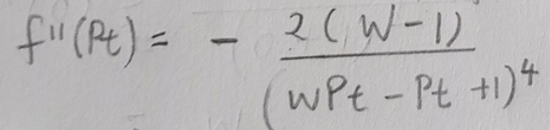 f''(Pt) = - 2(W-1) / (WPt - Pt +1)^4